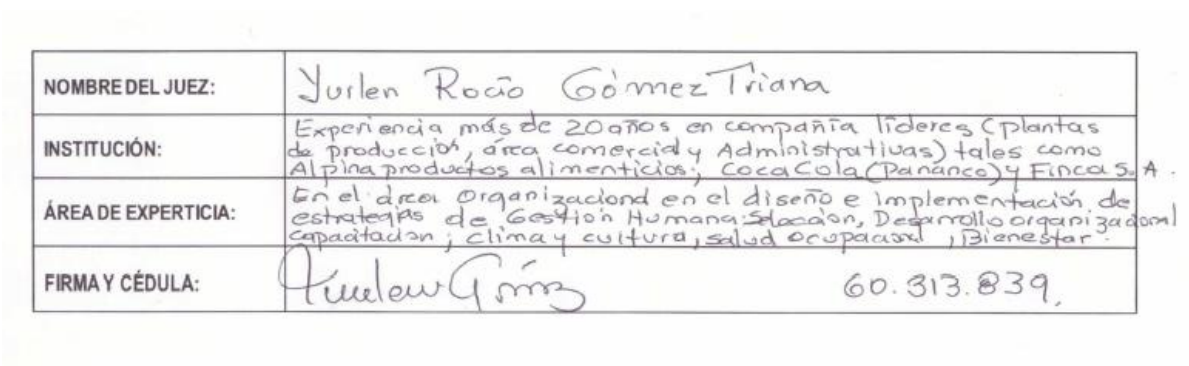 NOMBRE DEL JUEZ: Yurlen Rocío Gómez Triana
INSTITUCIÓN: Experiencia más de 20 años en compañía líderes (plantas
de producción, área comercial y Administrativas) tales como
Alpina productos alimenticios, Coca Cola (Panamco) y Finca S. A.
ÁREA DE EXPERTICIA: En el área organizacional en el diseño e implementación de
estrategias de Gestión Humana: Selección, Desarrollo organizacional
capacitación; clima y cultura, salud ocupacional, Bienestar.
FIRMA Y CÉDULA: 60.313.839.